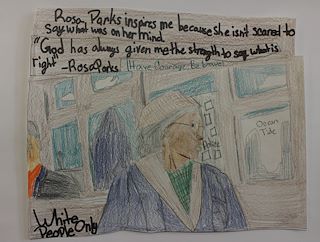 Rosa Parks inspires me because she isn't scared to
say what was on her mind
"God has always given me the strength to say what is
right" -Rosa Parks
Have Courage. Be brave!
Ocean
Tide
White
People Only